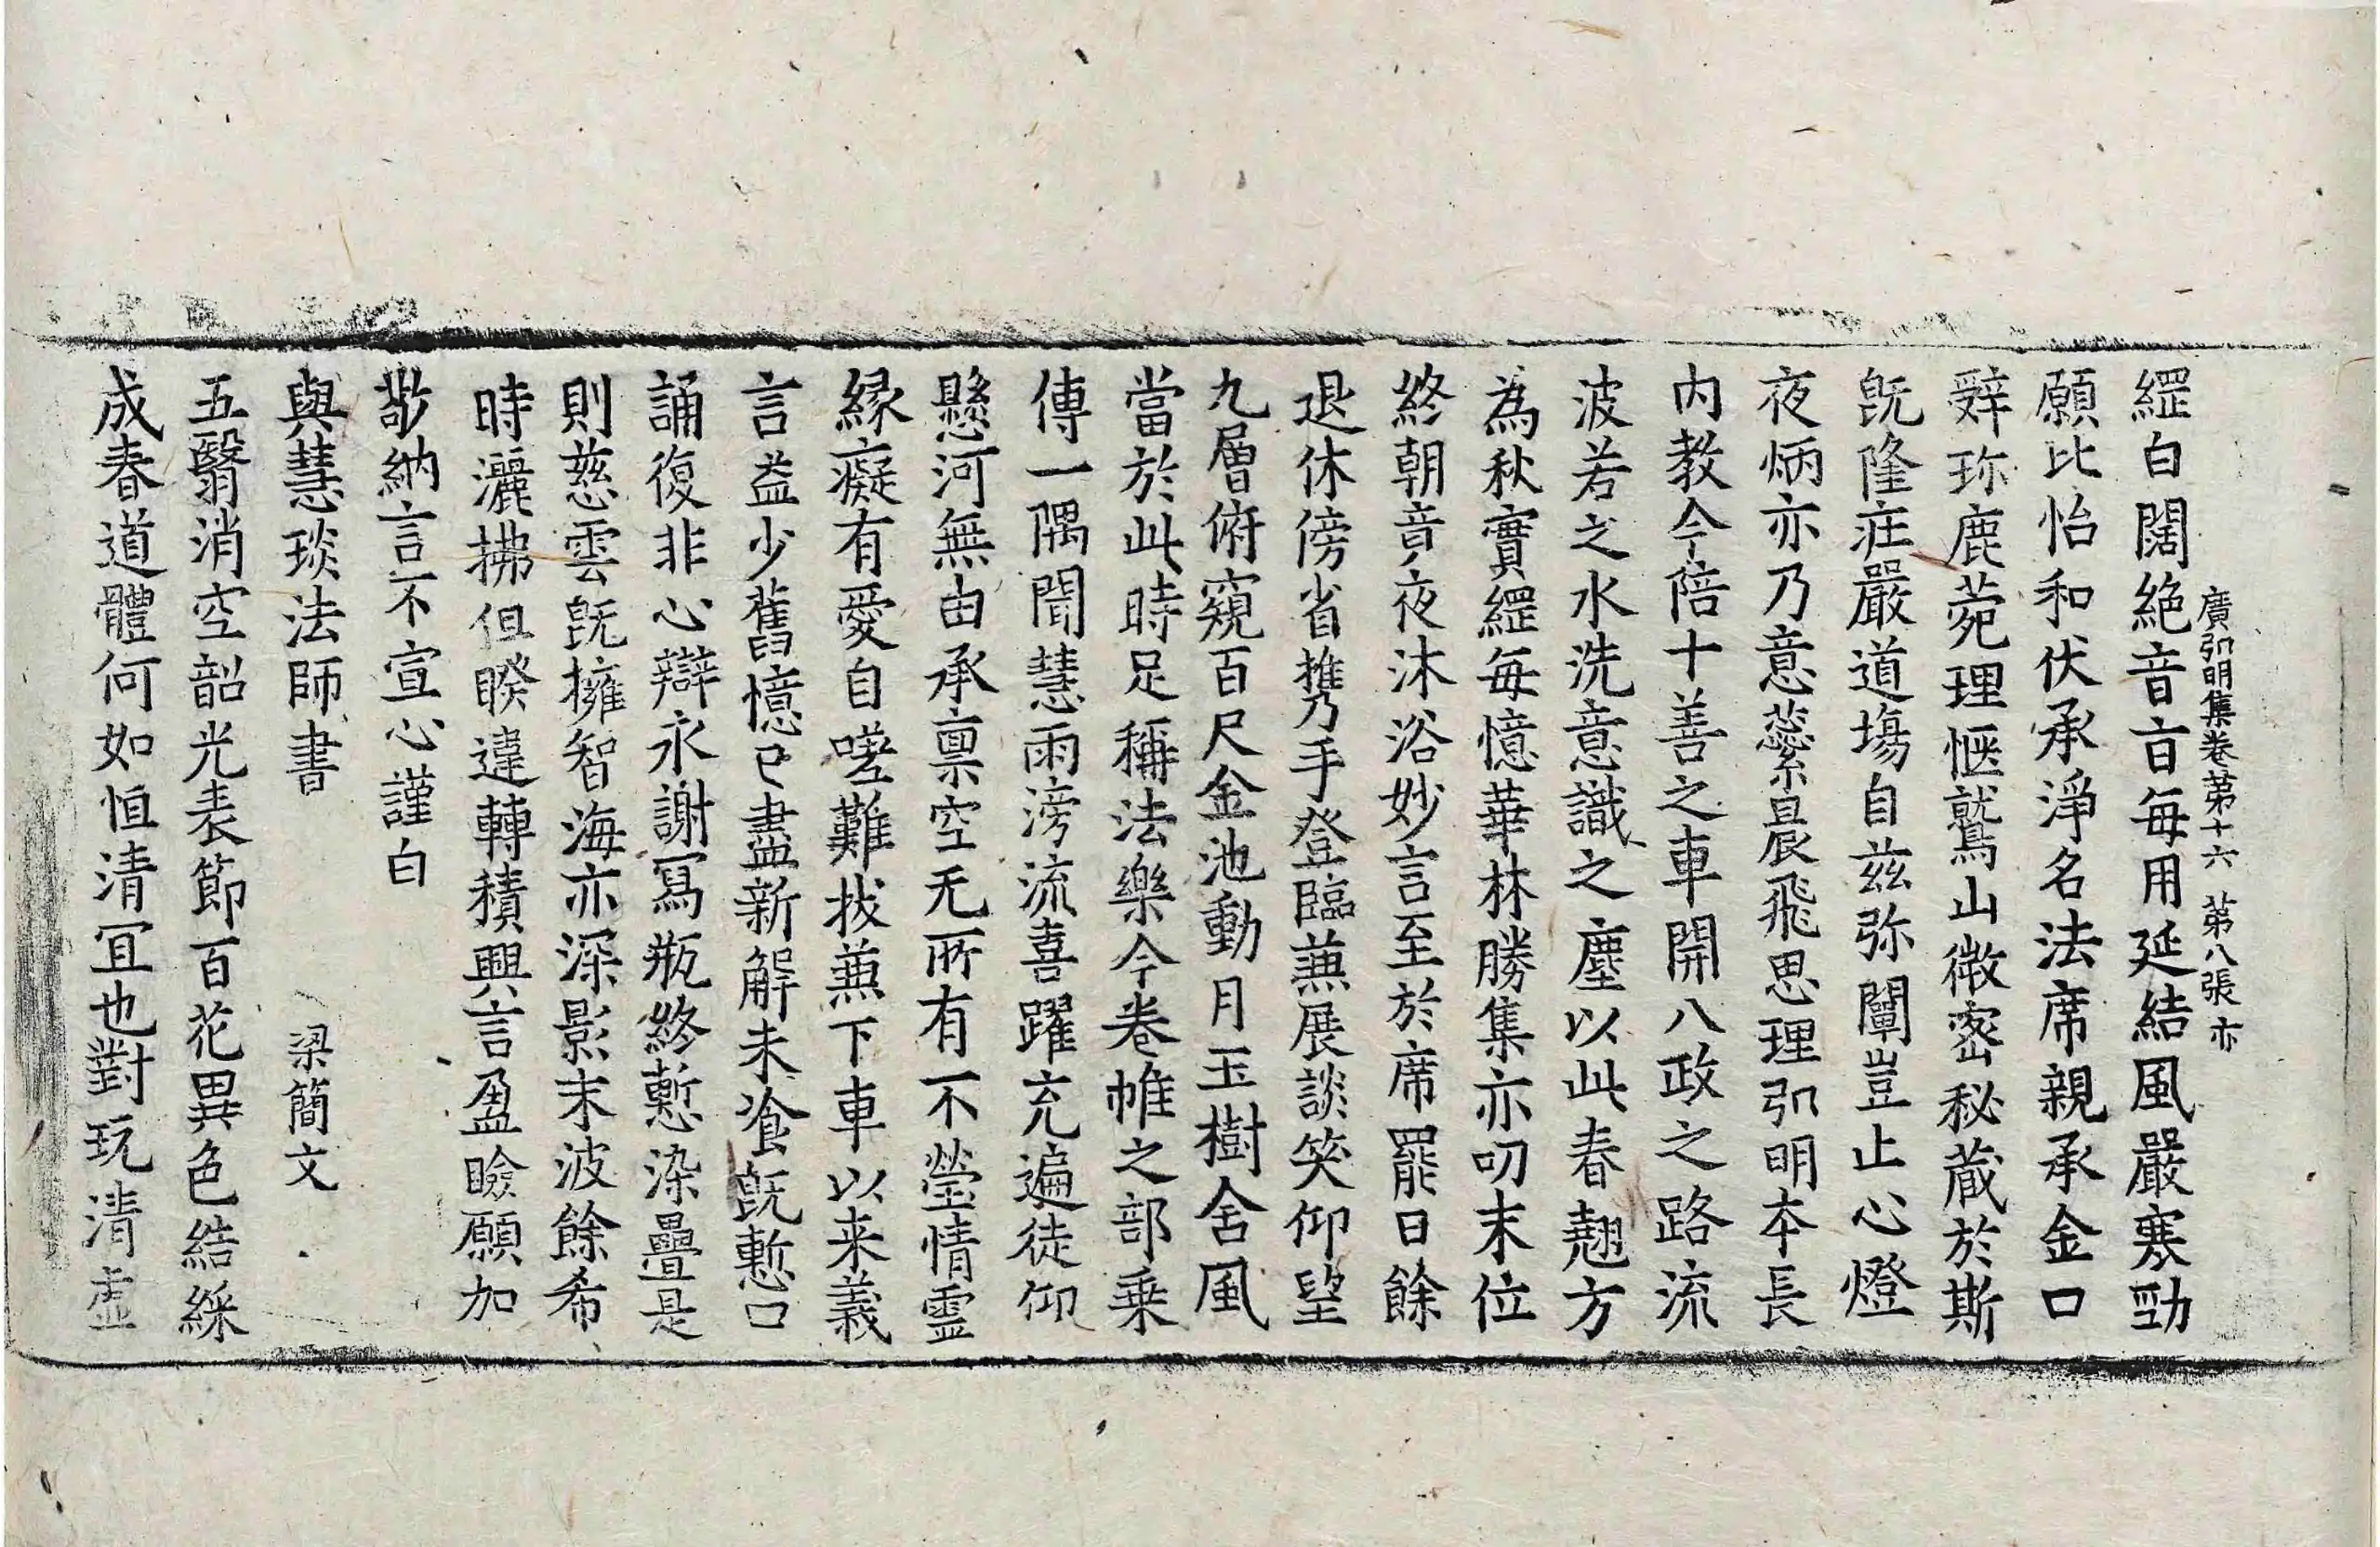 廣弘明集卷第十六 第八張 亦
綱白闊絶音旨每用延結風嚴寒勁
願比怡和伏承淨名法席親承金口
辝珎鹿菀理愜鷲山微密秘蔵於斯
旣隆庄嚴道塲自兹弥闡豈止心燈
夜炳亦乃意蘂晨飛思理弘明本長
内教今陪十善之車開八政之路流
波若之水洗意識之塵以此春翹方
為秋實綱每憶華林勝集亦叨末位
終朝竟夜沐浴妙言至於席罷日餘
退休傍省攜手登臨兼展談笑仰望
九層俯窺百尺金池動月玉樹含風
當於此時足稱法樂今卷帷之部乗
傳一隅聞慧雨滂流喜躍充遍徒仰
懸河無由承稟空无所有不瑩情靈
緣癡有愛自嗟難拔兼下車以来義
言益少舊憶已盡新解未飡旣慙口
誦復非心辯永謝寫瓶終慙染疊是
則慈雲旣擁智海亦深影末波餘希
時灑拂但睽違轉積興言盈瞼願加
敬納言不宣心謹白
與慧琰法師書 梁簡文
五翳消空韶光表節百花異色結綵
成春道體何如恒清冝也對玩清虛